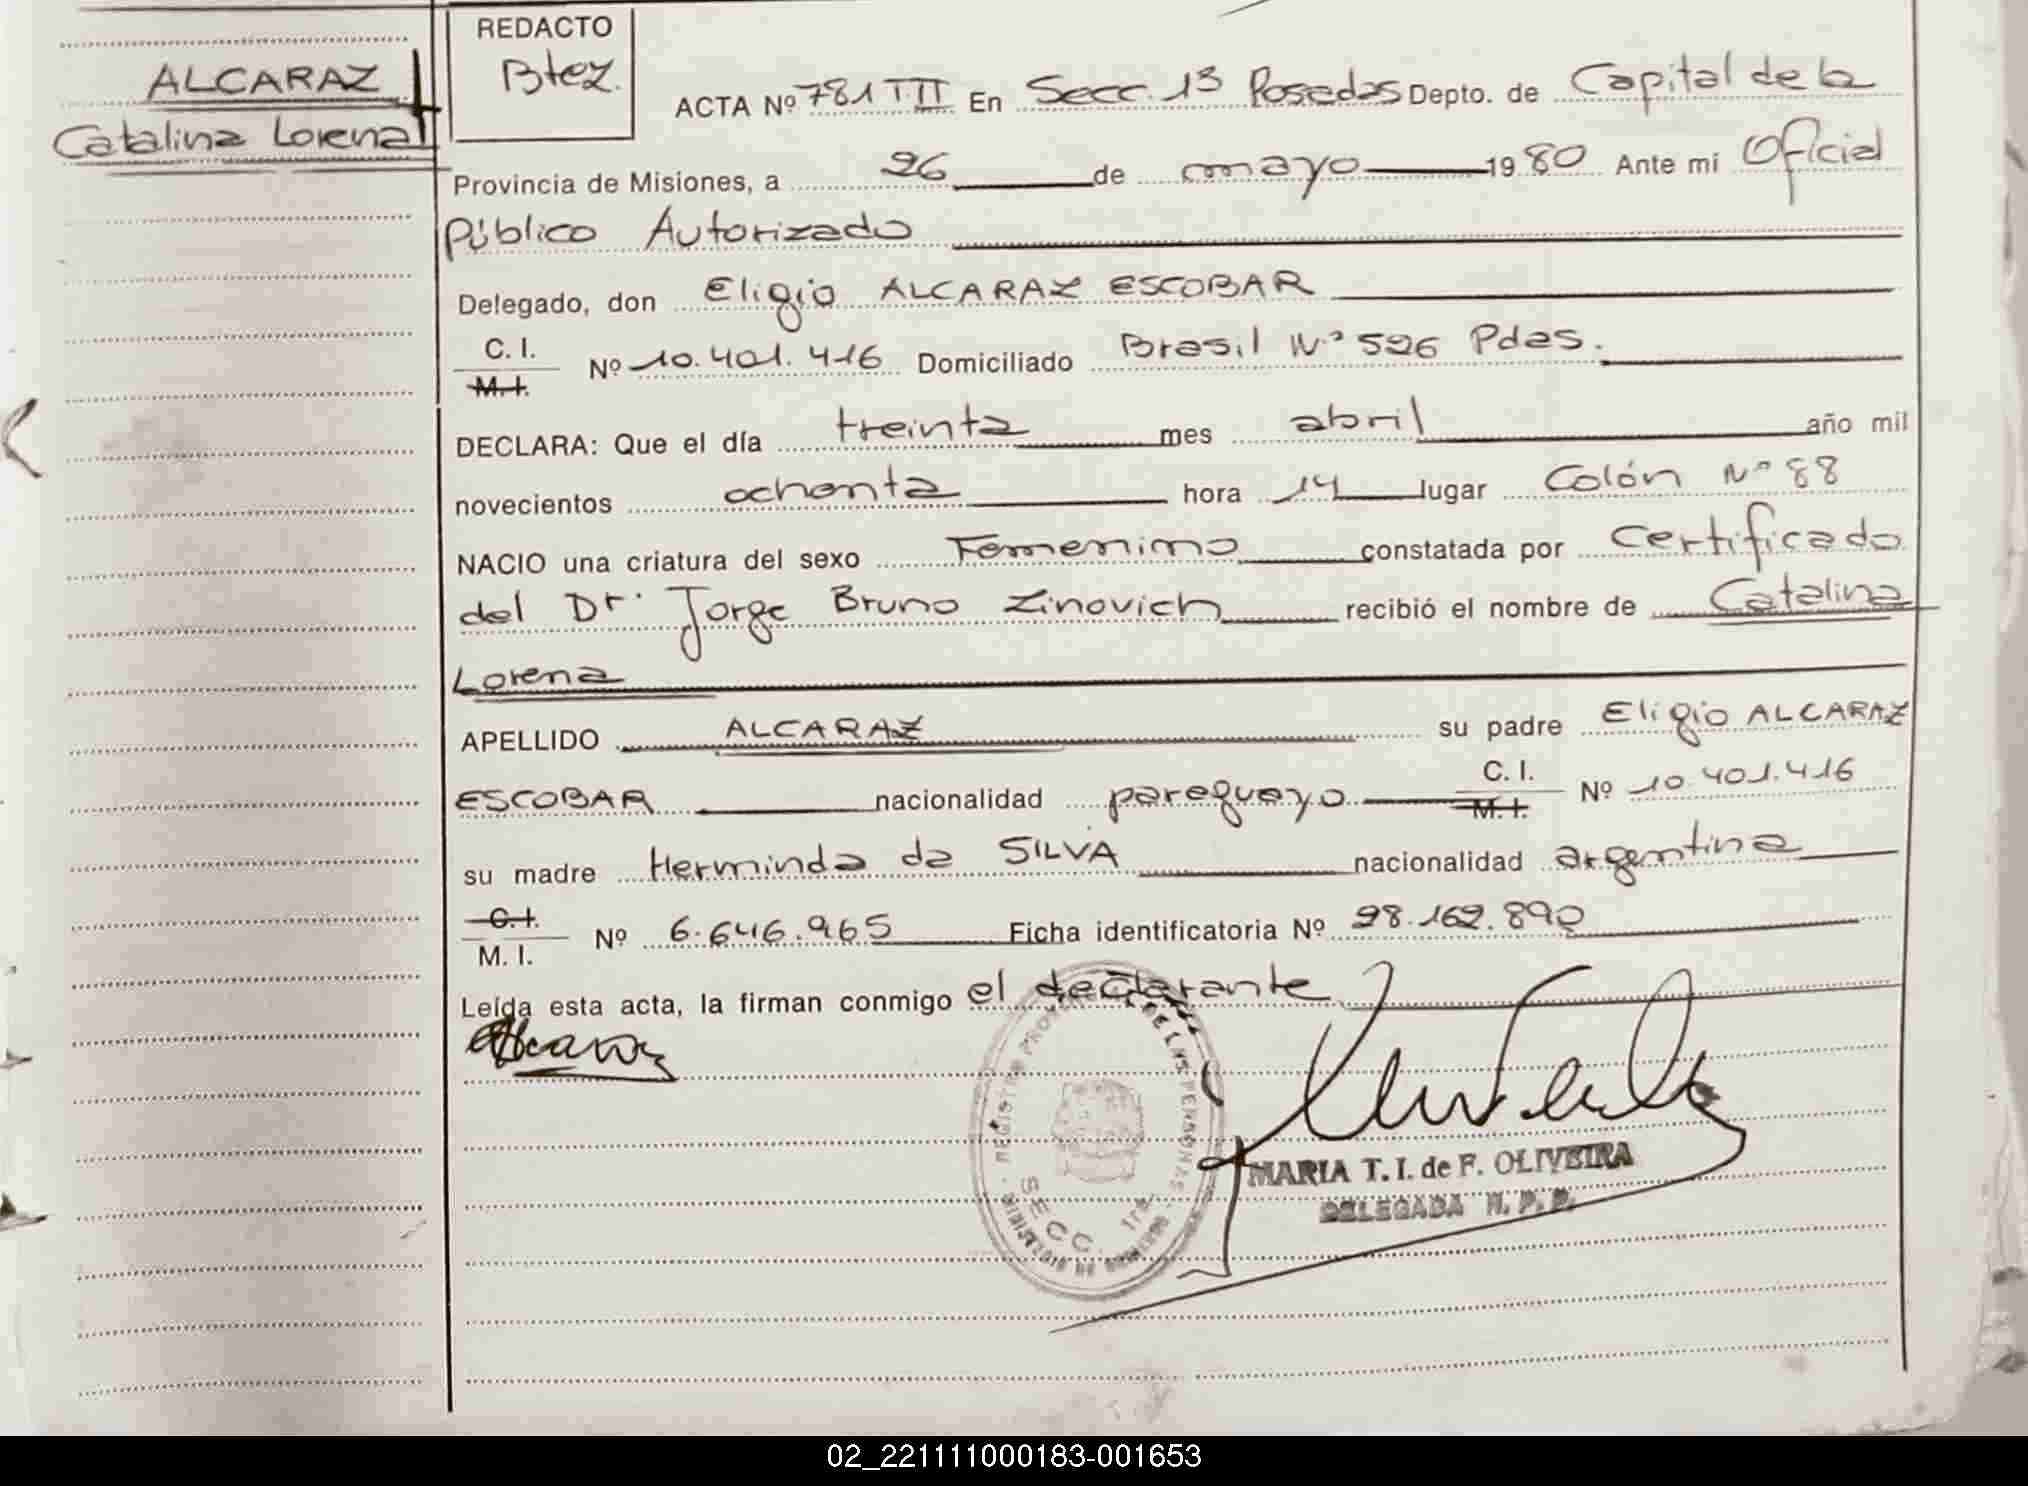 REDACTO
Btez.
ALCARAZ
Catalina Lorena
ACTA Nº 781 TII En Secc. 13 Posadas Depto. de Capital de la
Provincia de Misiones, a 26 de mayo 1980 Ante mi Oficial
Público Autorizado
Delegado, don Eligio ALCARAZ ESCOBAR
C. I.
M. I.
Nº 10.401.416 Domiciliado Brasil Nº 526 Pdas.
DECLARA: Que el día treinta mes abril año mil
novecientos ochenta hora 14 lugar Colón Nº 88
NACIO una criatura del sexo Femenino constatada por Certificado
del Dr. Jorge Bruno Zinovich recibió el nombre de Catalina
Lorena
APELLIDO ALCARAZ su padre Eligio ALCARAZ
ESCOBAR nacionalidad paraguayo C. I. M. I. Nº 10.401.416
su madre Herminda da SILVA nacionalidad argentina
C. I.
M. I.
Nº 6.646.965 Ficha identificatoria Nº 28.162.890
Leída esta acta, la firman conmigo el declarante
Alcaraz
REGISTRO PROV DE LAS PERSONAS
SECC. 1ra.
MARIA T. I. de F. OLIVEIRA
DELEGADA R. P. P.
02_221111000183-001653